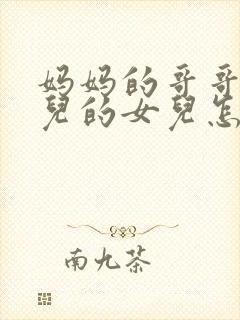 妈妈的哥哥
兒的女兒怎
南九茶